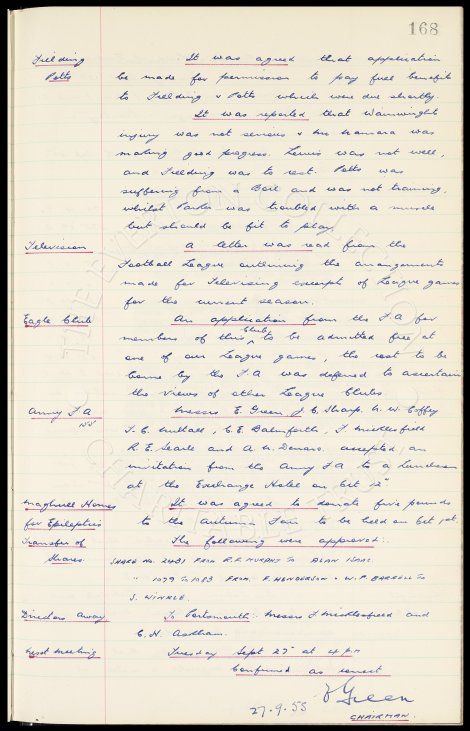 168
Fielding It was agreed that application
Potts be made for permission to pay full benefits
to Fielding & Potts which were due shortly.
It was reported that Wainwright
injury was not serious & McNamara was
making good progress. Lewis was not well,
and Fielding was to rest. Potts was
suffering from a Boil and was not training,
whilst Parker was troubled with a muscle
but should be fit to play.
Television A letter was read from the
Football League outlining the arrangements
made for Televising excerpts of League games
for the current season.
Eagle Club An application from the F.A for
members of this Club to be admitted free at
one of our League games, the cost to be
borne by the F.A was deferred to ascertain
the views of other League Clubs.
Army F.A Messrs E. Green, J. C. Sharp, N. W. Coffey
T. C. Nuttall, C. E. Balmforth, F. Micklesfield
R. E. Searle and A. N. Denaro accepted an
invitation from the Army F.A to a Luncheon
at the Exchange Hotel on Oct 12th
Maghull Homes It was agreed to donate five pounds
for Epileptics to the Autumn Fair to be held on Oct 1st.
Transfer of The following were approved:
Shares. SHARE NO. 2431 FROM R.F. MURPHY TO ALAN ISAAC
" 1079 TO 1083 FROM F. HENDERSON & W. P. TO
S. WINKLE.
Directors away To Portsmouth: Messrs F Micklesfield and
C. H. Askham.
Next meeting Tuesday Sept 27th at 4 pm
Confirmed as correct
27.9.55 E Green
CHAIRMAN.